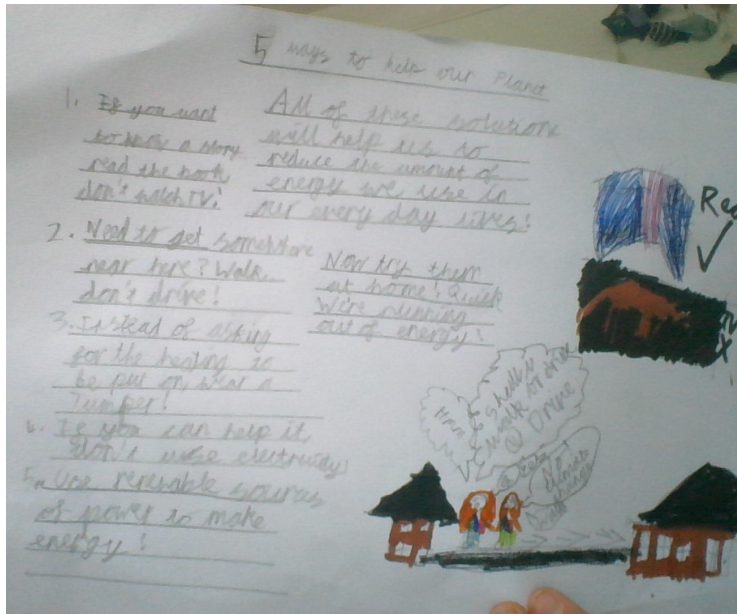 5 ways to help our Planet
1. If you want
to know a story
read the book
don't watch TV!
2. Need to get somewhere
near here? Walk
don't drive!
3. Instead of asking
for the heating to
be put on, wear a
Jumper!
4. If you can help it
don't use electricity
5. Use renewable sources
of power to make
energy!
All of these solutions
will help us to
reduce the amount of
energy we use in
our every day lives!
Now try them
at home! Quick
We're running
out of energy!
shall i
walk or drive
No